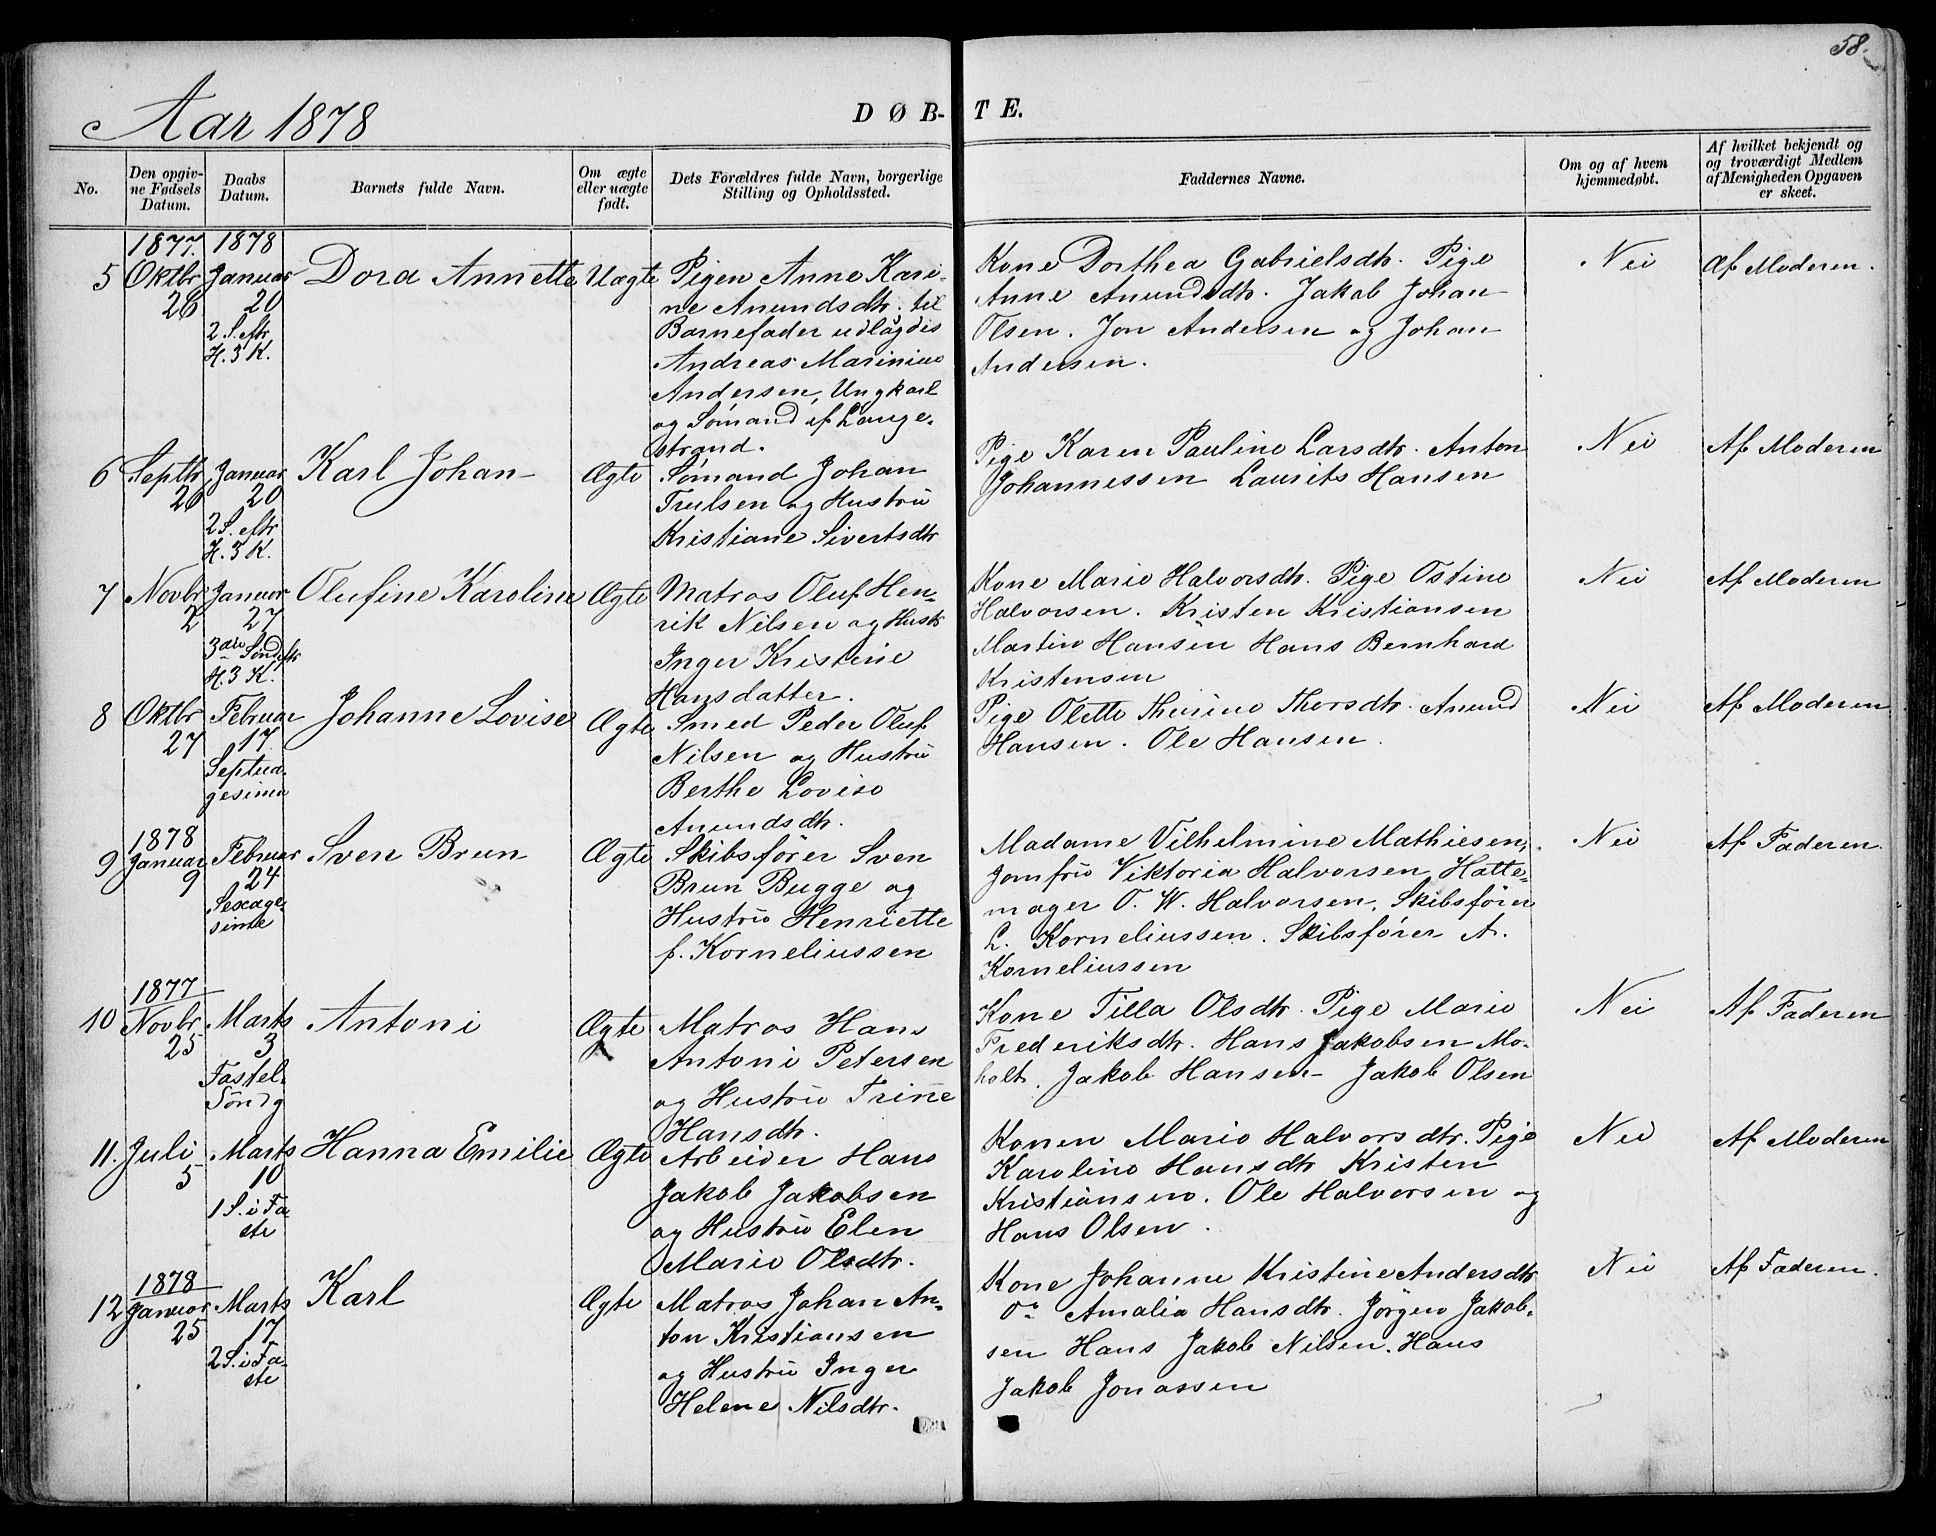 58.
Aar 1878
DØB-TE.
No.
Den opgivne Fødsels Datum.
Daabs Datum.
Barnets fulde Navn.
Om ægte eller uægte født.
Dets Forældres fulde Navn, borgerlige Stilling og Opholdssted.
Faddernes Navne.
Om og af hvem hjemmedøbt.
Af hvilket bekjendt og og troværdigt Medlem af Menigheden Opgaven er skeet.
5
1877.
Oktbr
26
1878
Januar
20
2 S. eftr
H. 3 K.
Dora Annette
Uægte
Pigen Anne Kari-
ne Anundsdtr. til
Barnefader udlagdis
Andreas Marinius
Andersen, Ungkarl
og Sømand af Lange-
strand.
Kone Dorthea Gabrielsdtr. Pige
Anne Anundsdtr. Jakob Johan
Olsen. Jon Andersen og Johan
Andersen.
Nei
Af Moderen.
6
Septbr
26
Januar
20
2 S. eftr
H. 3 K.
Karl Johan
Ægte
Sømand Johan
Trulsen og Hustru
Kristiane Sivertsdtr
Pige Karen Pauline Larsdtr. Anton
Johannessen Laurits Hansen
Nei
Af Moderen
7
Novbr
2
Januar
27
3die Sønd eftr
H. 3 K.
Olufine Karoline
Ægte
Matros Oluf Hen-
rik Nilsen og Hustr
Inger Kristine
Hansdatter.
Kone Marie Halvorsdtr. Pige Ostine
Halvorsen. Kristen Kristiansen
Martin Hansen Hans Bernhard
Kristensen
Nei
Af Moderen
8
Oktbr
27
Februar
17
Septua-
gesima
Johanne Lovise
Ægte
Smed Peder Oluf
Nilsen og Hustru
Berthe Lovise
Anundsdtr.
Pige Olette Thorine Thorsdtr. Anund
Hansen. Ole Hansen.
Nei
Af Moderen
9
1878
Januar
9
Februar
24
Sexage-
sima
Sven Brun
Ægte
Skibsfører Sven
Brun Bugge og
Hustru Henriette
f. Korneliussen
Madame Vilhelmine Mathiesen,
Jomfru Viktoria Halvorsen, Hatte-
mager O. W. Halvorsen, Skibsfører
L. Korneliussen. Skibsfører A.
Korneliussen
Nei
Af Faderen.
10
1877
Novbr
25
Marts
3
Fastel.
Søndg
Antoni
Ægte
Matros Hans
Antoni Petersen
og Hustru Trine
Hansdtr.
Kone Tilla Olsdtr. Pige Marie
Frederiksdtr. Hans Jakobsen Mo-
holt. Jakob Hansen – Jakob Olsen
Nei
Af Faderen
11.
Juli
5
Marts
10
1 S. i Fa-
ste
Hanna Emilie
Ægte
Arbeider Hans
Jakob Jakobsen
og Hustru Elen
Marie Olsdtr.
Konen Marie Halvorsdtr. Pige
Karoline Hansdtr Kristen
Kristiansen. Ole Halvorsen og
Hans Olsen.
Nei
Af Moderen
12
1878
Januar
25
Marts
17
2 S. i Fa-
ste
Karl
Ægte
Matros Johan An-
ton Kristiansen
og Hustru Inger
Helene Nilsdtr.
Kone Johanne Kristine Andersdtr
Amalia Hansdtr. Jørgen Jakob-
sen Hans Jakob Nilsen. Hans
Jakob Jonassen
Nei
Af Faderen.